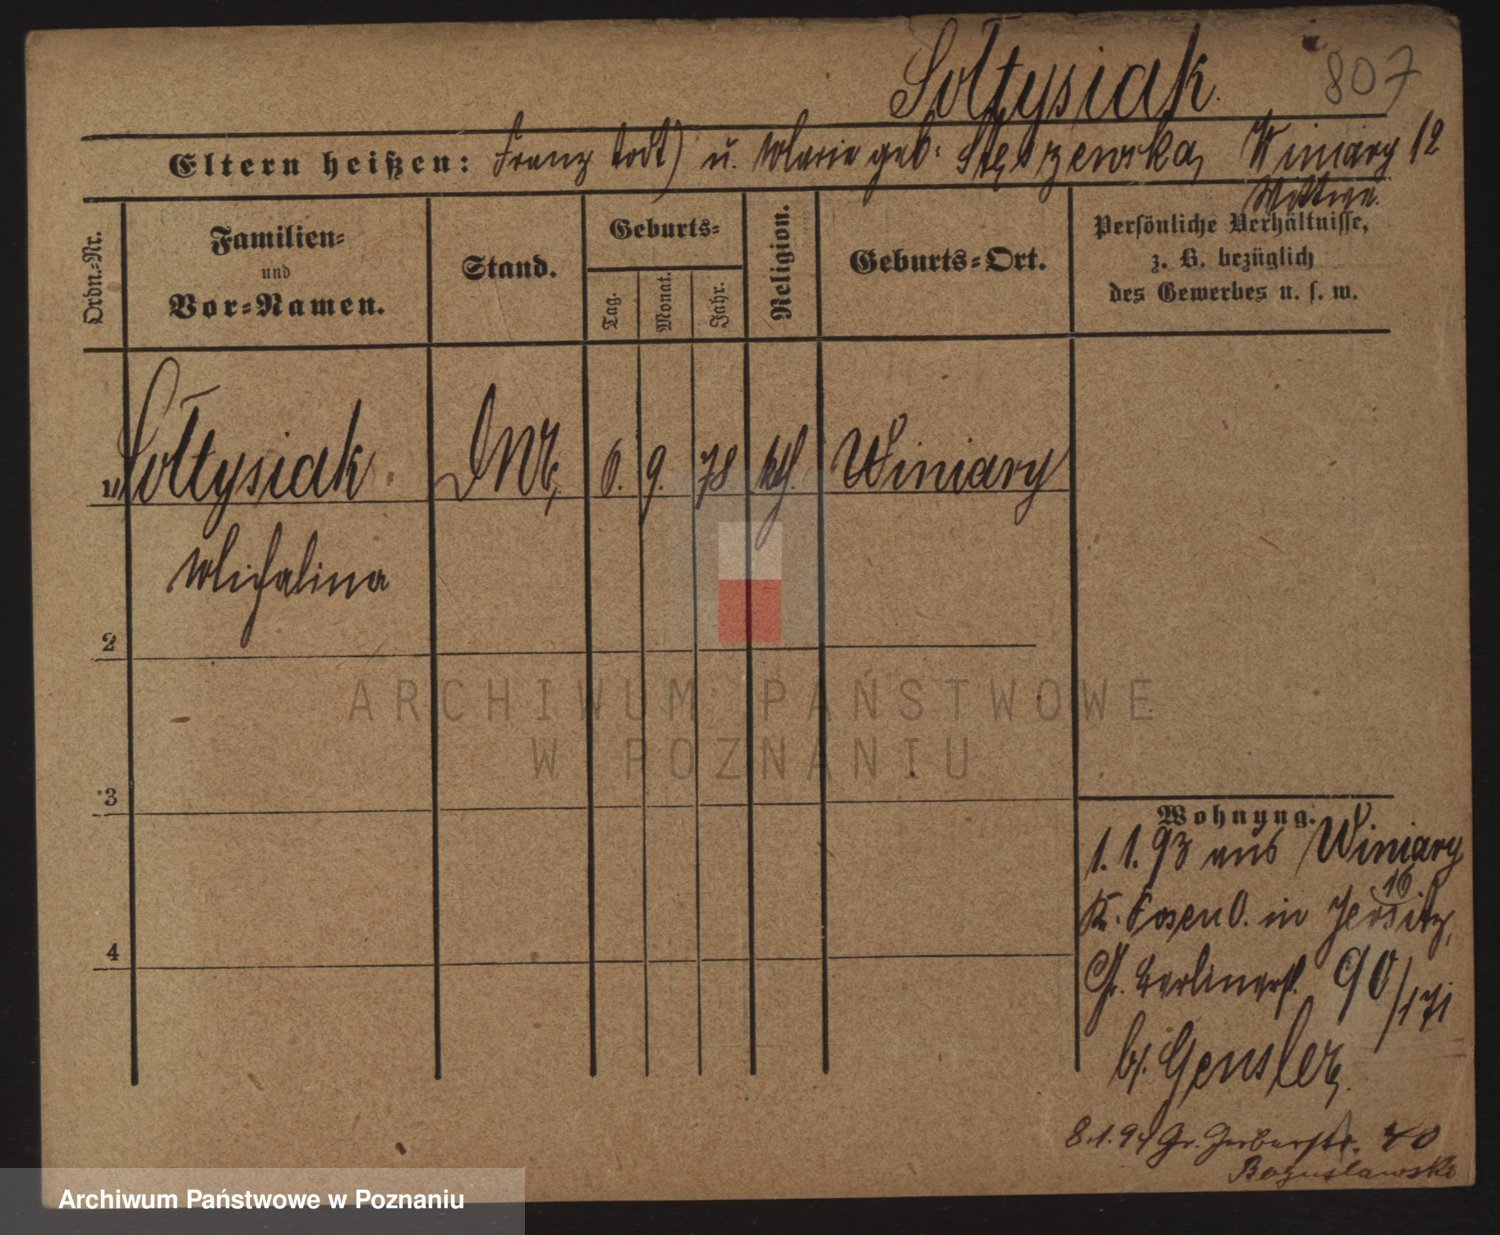 Sołtysiak. 807
Eltern heißen: Franz todt) u. Marie geb. Winiary 12
Wittwe.
Ordn.-Nr.
Familien-
und
Vor-Namen.
Stand.
Geburts-
Tag.
Monat.
Jahr.
Religion.
Geburts-Ort.
Persönliche Verhältnisse,
z. B. bezüglich
des Gewerbes u. s. w.
1 Sołtysiak 6. 9. 78 kth. Winiary
Michalina
2
3
4
Wohnung.
1.1.93 aus Winiary
16
Kr. Posen O. in Jersitz,
Gr. Berlinerst. 90/171
b/. Gensler.
8.1.94 Gr. Gerberstr. 40
Boguslawski
ARCHIWUM PAŃSTWOWE
W POZNANIU
Archiwum Państwowe w Poznaniu